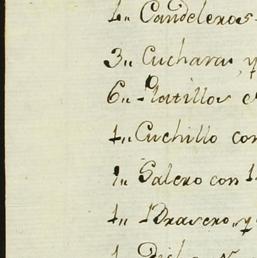 1,, Candeleros
3,, Cuchara, y
6,, Platillos
1,, Cuchillo con
1,, Salero con 1
1,, Brasero, y q
1